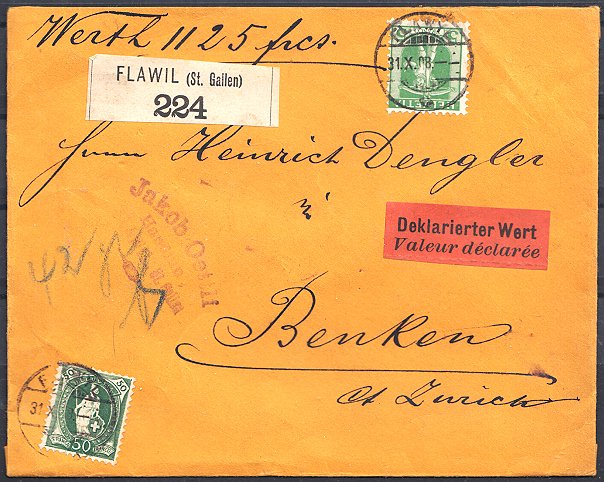 Werth 1125 frcs.
31.X.08
HELVETIA
FLAWIL (St. Gallen)
224
Herrn Heinrich Dengler
Jakob
Deklarierter Wert
Valeur déclarée
42 gr
Benken
Ct. Zürich
50 50
31.X
50